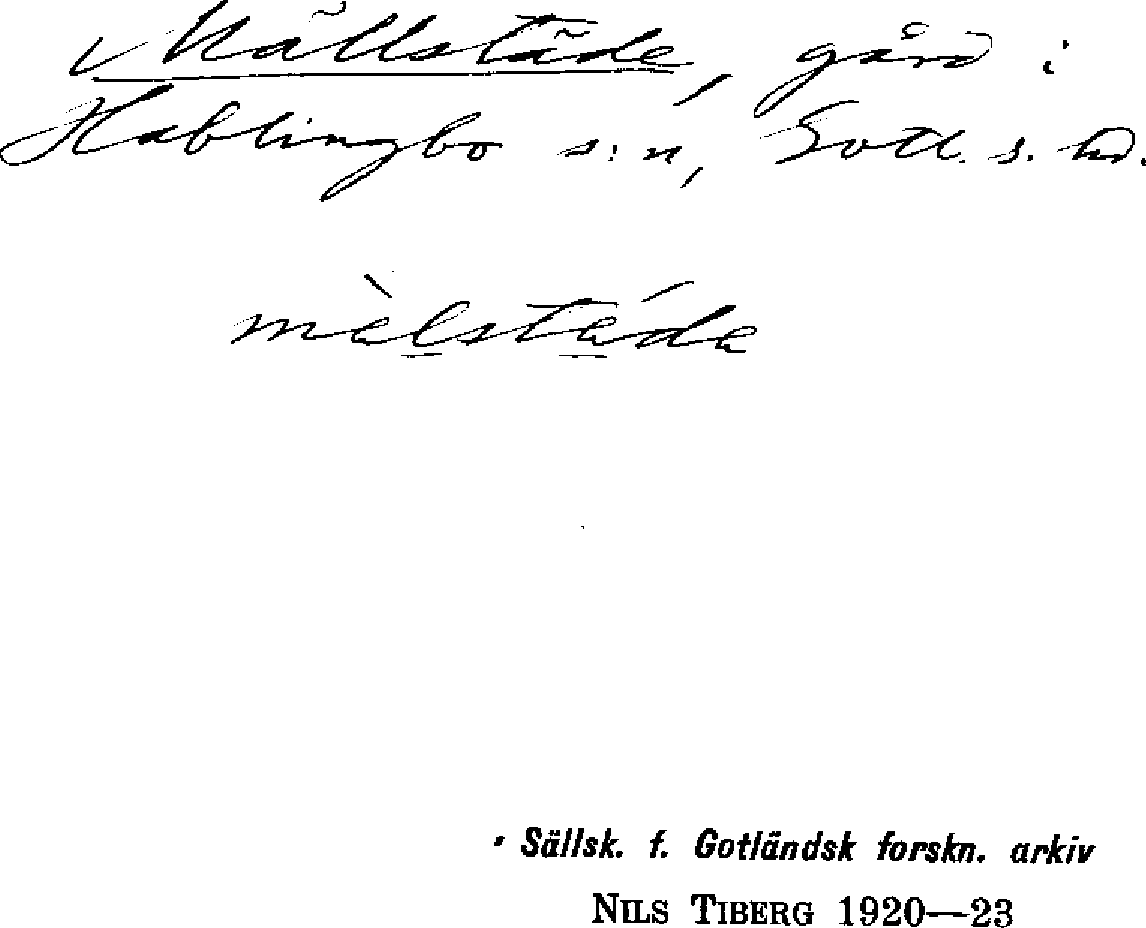 Mällstäde, gård i
Hablingbo s:n, Gotl. s. hd.
mȧ̀lstáda
Sällsk. f. Gotländsk forskn. arkiv
NILS TIBERG 1920—23